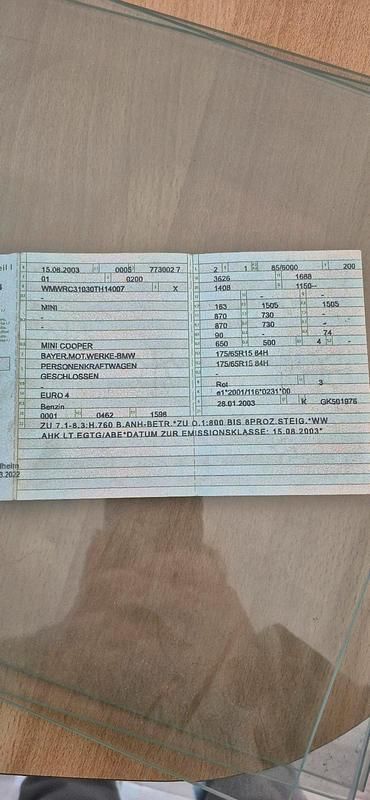 15.08.2003 0005 773002 7
01 0200
WMWRC31030TH14007 X
-
MINI
-
-
-
MINI COOPER
BAYER.MOT.WERKE-BMW
PERSONENKRAFTWAGEN
GESCHLOSSEN
-
EURO 4
Benzin
0001 0462 1598
2 1 85/6000 200
3626 1688
1408 1150--
- -
163 1505 1505
870 730 -
870 730 -
90 - 74
650 500 4 -
175/65R15 84H
175/65R15 84H
-
-
Rot 3
e1*2001/116*0231*00
28.01.2003 K GK501976
ZU 7.1-8.3:H.760 B.ANH-BETR.*ZU O.1:800 BIS 8PROZ.STEIG.*WW
AHK LT.EGTG/ABE*DATUM ZUR EMISSIONSKLASSE: 15.08.2003*